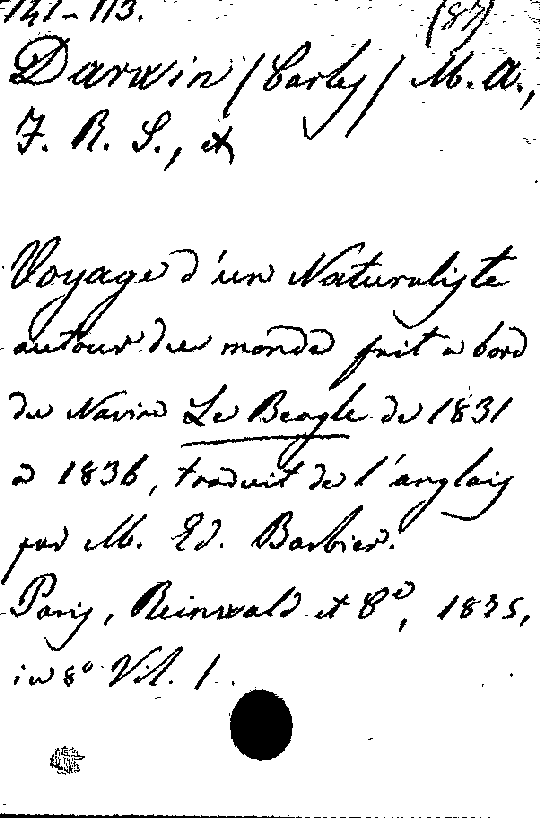 141-113. (87)
Darwin (Carly) M. A.,
F. R. S., et
Voyage d'un Naturaliste
autour du monde fait a bord
du Navire Le Beagle de 1831
a 1836, traduit de l'anglais
par M. Ed. Barbier.
Paris, Reinwald et Cº, 1875,
in 8º Vil. 1.